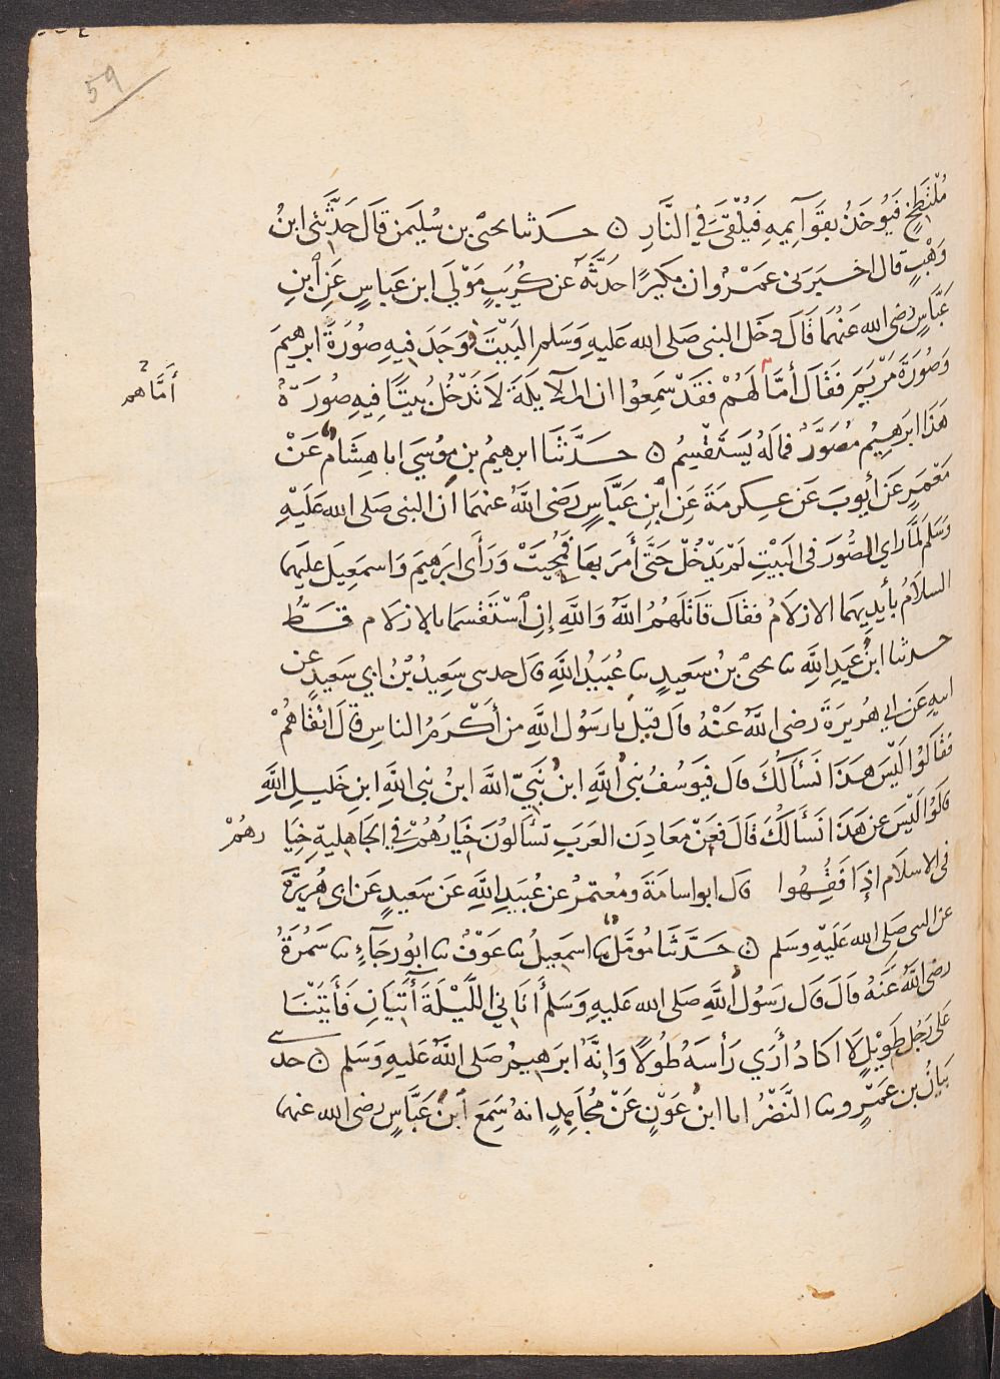 59
مُلْتَطِخٍ فَيُوخَذُ بقَوَآيِمِهِ فَيُلْقَى فِي النَّارِ ٥ حدثنا يحيى بن سُلَيمن قَالَ حَدَّثَنى ابنُ
وَهْبٍ قال اخبرنى عَمْرٌو ان بُكَيرًا حَدَّثَهُ عن كُرَيبٍ مَوْلَى ابن عَباسٍ عَنِ ابنِ
عَبَّاسٍ رضى الله عَنْهُمَا قَالَ دخَلَ النبى صَلى الله عَليهِ وَسَلم البَيْتَ وَجَدَ فيهِ صُورَةَ ابرهيمَ
وَصُورَةَ مَرْيَمَ فَقَالَ أَمَّا لَهُمْ فقَدْ سَمِعُوا ان الملآيكَةَ لاَ تَدْخُلُ بَيتًا فِيهِ صُورَةٌ
أَمَّا هم
هَذا ابرَهِيمُ مُصَوَّرٌ فمَا لَهُ يَسْتَقْسِمُ ٥ حَدَّثَنَا ابرهيمُ بن مُوسَى ابا هِشَامٌ عَنْ
مَعْمَرٍ عَن أيوبَ عَن عِكرمَةَ عَنِ ابْنِ عَبَّاسٍ رَضى اللَّهُ عنهمَا أن النبى صَلى الله عَلَيْهِ
وَسَلم لمَّا رَاى الصُّوَرَ فى البَيْتِ لَمْ يَدْخُلْ حَتَّى أَمَرَ بهَا فَمُحِيَتْ وَرَأَى ابرَهيمَ وَاسمَعِيلَ عليهما
السلاَمُ بأَيدِيهمَا الازلاَمُ فقَالَ قَاتَلَهُمُ اللَّهُ وَاللَّهِ إنِ اسْتَقْسَمَا بالازلاَم قَطُّ
حدثنا ابنُ عَبدِ اللَّهِ نا يحيى بنُ سَعِيدٍ نا عُبَيدُ اللَّهِ قال حدثنى سَعِيدُ بْنُ أبي سَعيدٍ عن
ابيهِ عَن ابى هُرَيرَةَ رضى اللَّهُ عَنْهُ قالَ قيلَ يا رَسُولَ اللَّهِ مَن أَكْرَمُ الناسِ قَالَ اتْقَاهُمْ
فقَالوُا لَيْسَ عَن هَذَا نَسْأَلُكَ قال فيَوسُفُ نبىُّ اللَّهِ ابنُ نَبِيِّ اللَّه ابنُ نبى اللَّهِ ابنِ خَليلِ اللَّهِ
قالوُا لَيْسَ عن هَذَا نَسْأَلُكَ قَالَ فَعَنْ مَعَادِن العَرَبِ تسْأَلُونَ خيَارُهُمْ فِي الجَاهِليةِ خيَا رهُمْ
فى الاسلاَم إذَا فَقُهُوا قال ابو اسامَةَ ومُعتمرٌ عن عُبَيدِ اللَّهِ عَن سَعيدٍ عَن ابى هُرَيرَةَ
عن النبى صَلى الله عَلَيْهِ وسَلم ٥ حَدَّثَنَا مُومَّلٌ نا اسمَعيلُ نا عَوْفٌ نا ابُو رَجَآءٍ نا سَمُرَةُ
رضى اللَّهُ عَنْهُ قالَ قال رَسُولُ اللَّهِ صَلى الله عَليهِ وَسَلم أَتَانِي اللَّيْلَةَ آتِيَانِ فَأَتَيْنَا
عَلى رَجُلٍ طَوِيْلٍ لا اكادُ أَرَى رَأسَهُ طُولاً وَإنَّهُ ابرَهيمُ صَلى اللَّهُ عَليهِ وَسَلم ٥ حدثنى
بَيانُ بن عَمْرٍو نا النَّضْرُ ابا ابنُ عَوْنٍ عَنْ مُجَاهِدٍ انهُ سَمِعَ ابنَ عَبَّاسٍ رضى الله عنهما